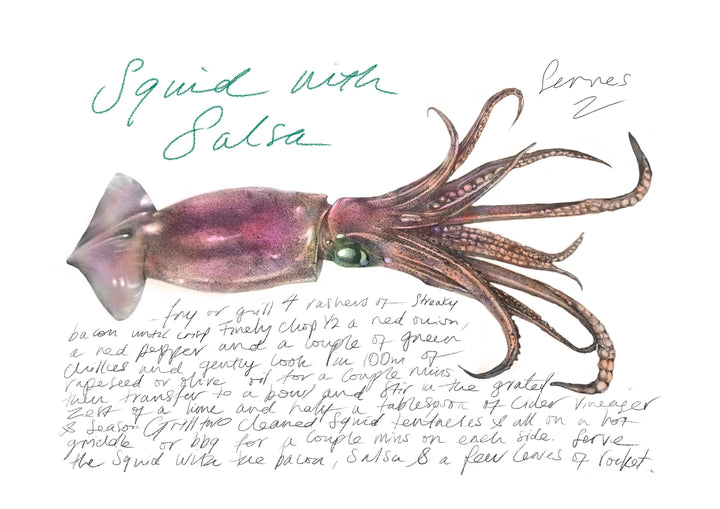 Squid with
Salsa
Serves
2
fry or grill 4 rashers of streaky
bacon until crisp Finely chop 1/2 a red onion,
a red pepper and a couple of green
chillies and gently cook in 100m of
rapeseed or olive oil for a couple mins
then transfer to a bowl and stir in the grated
zest of a lime and half a tablespoon of cider vineager
& season Grill two cleaned squid tentacles & all on a hot
griddle or bbq for a couple mins on each side. Serve
the squid with the bacon, salsa & a few leaves of rocket.